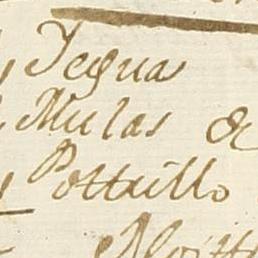 Yegua
Mulas &
Pottrillo